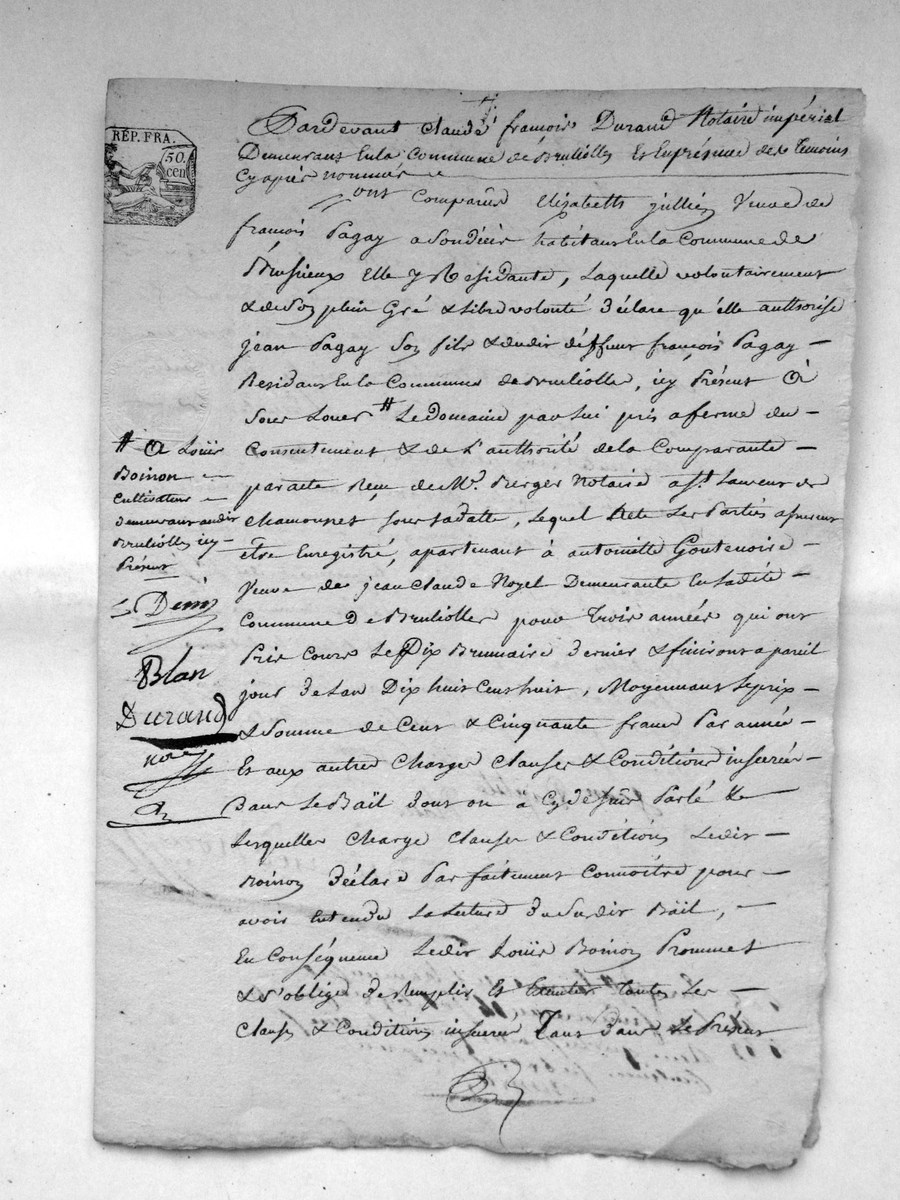 RÉP. FRA.
50.
cen
Pardevant Claude françois Durand Notaire impérial
Demeurant En la Commune de Brullioles Et En présence des temoins
Cy après nommés
ont Comparus Elizabeth jullien Veuve de
françois Pagay a Son décès habitant En la Commune de
Brusieux Elle y Residante, Laquelle volontairement
& de Son plein Gré & Libre volonté déclare qu'elle authorise
jean Pagay Son fils & dudit deffunt françois Pagay —
Residant En la Commune de Brullioles, icy Présent à
Sous Louer # Le domaine par Lui pris a ferme du —
Consentement & de L'authorité de la Comparante —
par acte Reçu de Mr. Berger Notaire a St. Laurent de
Chamousset Sous Sa datte, Lequel Acte Les Parties assurent
être Enregistré, apartenant à antoinette Goutenoire —
Veuve de jean Claude Noyel Demeurante En Ladite —
Commune De Brullioles pour trois années qui ont
Pris Cours Le Dix Brumaire dernier & finiront a pareil
jour de Lan Dix huit Cent huit, Moyennant Le prix —
& Somme de Cent & Cinquante francs Par année —
Et aux autres Charges Clauses & Conditions inserées
Dans Le Bail dont on à Cy dessus Parlé &
Lesquelles Charge Clauses & Conditions Ledit —
Boinon déclare Parfaitement Connoitre pour —
avoir Entendu La Lecture du Susdit Bail, —
En Conséquence Ledit Loüis Boinon Prommet
& s'oblige de Remplir Et Executer toutes Les —
Clauses & Conditions inserées Tant dans Le Présent
# a Loüis
Boinon
Cultivateur
demeurant audit
Brullioles icy
Présent
Denis
Blan
Durand
Nore